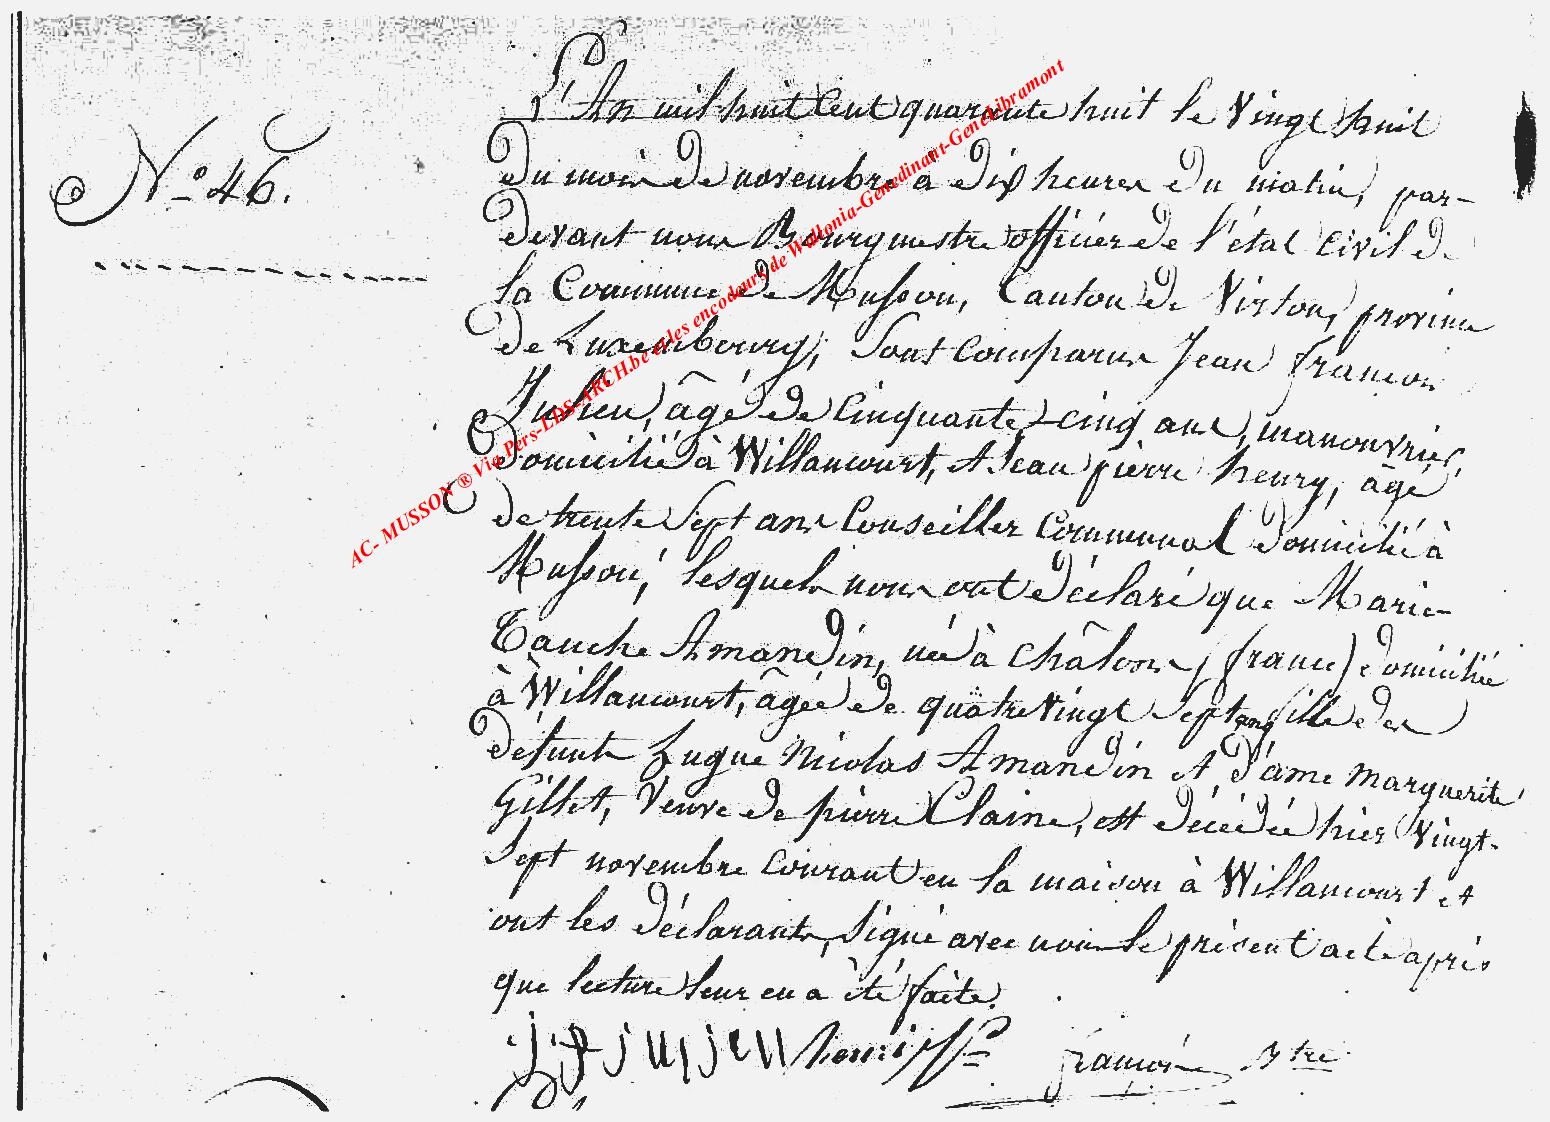 L'An mil huit Cent quarante huit le Vingt huit
N° 46.
du mois de novembre à dix heures du matin, par-
devant nous Bourgmestre officier de l'état Civil de
la Commune de Musson, Canton de Virton, province
de Luxembourg, Sont comparus Jean françois
Julien, âgé de Cinquante-cinq ans, manouvrier,
domicilié à Willancourt, et Jean pierre henry, âgé
de trente Sept ans Conseiller Communal domicilié à
Musson, lesquels nous ont déclaré que Marie-
Amandin, née à Châlons, (france) domiciliée
à Willancourt, âgée de quatre Vingt Sept ans fille des
défunts Nicolas Amandin et d'ame marguerite
Gillet, Veuve de pierre Claine, est décédée hier Vingt-
Sept novembre courant en la maison à Willancourt et
ont les déclarants, Signé avec nous le présent acte après
que lecture leur en a été faite.
henri françois
AC- MUSSON ® Via Pers-EDS-ARCH.be et les encodeurs de Wallonia-Genedinant-Genelibramont